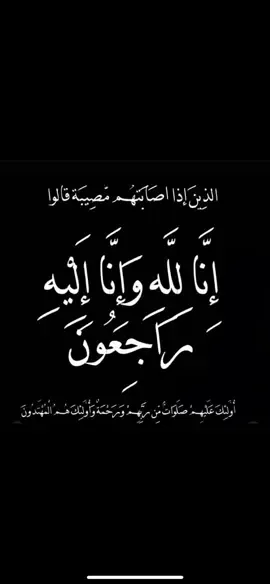 الذِينَ إذا اصَابَتهُم مّصِيبَة قالوا
إِنَّا لِلَّهِ وَإِنَّا إِلَيْهِ
رَاجِعُونَ
أُولَئِكَ عَلَيْهِمْ صَلَوَاتٌ مِّن رَّبِّهِمْ وَرَحْمَةٌ وَأُولَئِكَ هُمُ الْمُهْتَدُونَ